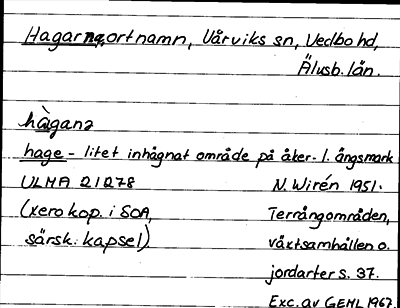 Hagarna, ortnamn, Vårviks sn, Vedbo hd,
Älvsb. län.
hàganɜ
hage - litet inhägnat område på åker- l. ängsmark
ULMA 21278 N. Wirén 1951.
(xerokop. i SOA, Terrängområden,
särsk. kapsel) växtsamhällen o.
jordarter s. 37.
Exc. av GEHL 1967.